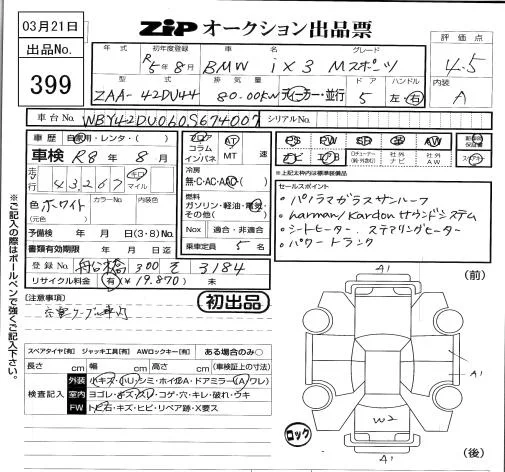 03月21日
ZIP オークション出品票
出品No.
399
評価点
4.5
内装
A
年式 初年度登録 車名 グレード
R5年8月 BMW iX3 Mスポーツ
型式 排気量 ドア ハンドル
ZAA-42DU44 80.00kw ディーラー・並行 5 左・右
車台No. WBY42DU060S674007 シリアルNo.
車歴 自家用・レンタ・( )
車検 R8年8月
走行 43,267 km マイル
色 ホワイト カラーNo. 内装色
(元色)
予備検 年 月 日(3・8)No.
書類有効期限 年 月 日迄
登録No. 船橋 300 そ 3184
リサイクル料金 有(¥19,870) 未
フロア
コラム
インパネ
AT
MT 速
冷房
無・C・AC・AAC・( )
燃料
ガソリン・軽油・電気・
その他( )
Nox 適合・非適合
乗車定員 5 名
PS PW SR 革 AW
ナビ エアB Oチューナー 社外ナビ 社外AW
スペアキー
※上記太枠内は標準装備品
セールスポイント
・パノラマガラスサンルーフ
・harman/Kardonサウンドシステム
・シートヒーター、ステアリングヒーター
・パワートランク
初出品
(注意事項)
充電ケーブル車内
※ご記入の際はボールペンで強くご記入下さい。
スペアタイヤ[有] ジャッキ工具[有] AWロックキー[有] ある場合のみ○
長さ cm 幅 cm 高さ cm (車検証上の寸法)
検査記入
外装 小キズ・小ヘコミ・シミ・ホイールA・ドアミラー(A ワレ)
室内 ヨゴレ・キズ・スレ・コゲ・穴・キレ・破れ・ウキ
FW トビ石・キズ・ヒビ・リペア跡・X要ス
(前)
A1
A1
W2
ロック
A1
(後)